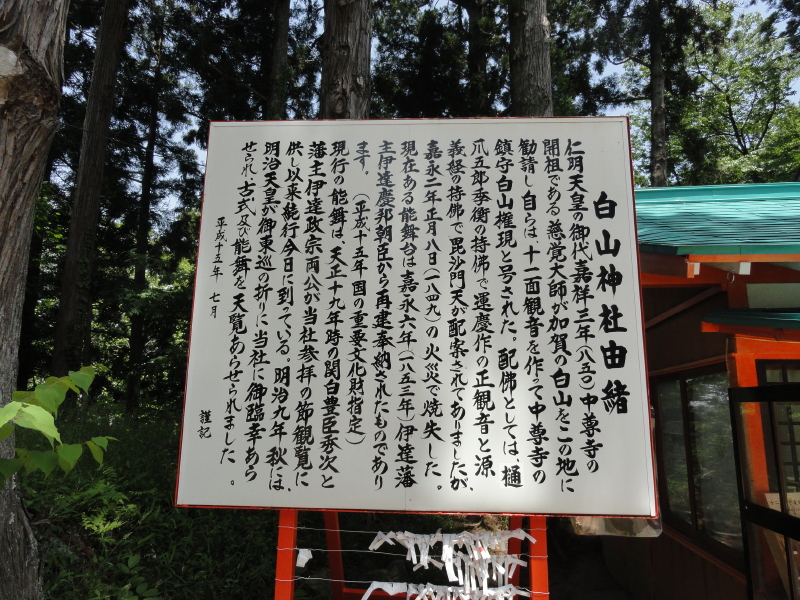 白山神社由緒
仁明天皇の御代嘉祥三年(八五〇)中尊寺の
開祖である慈覚大師が加賀の白山をこの地に
勧請し自らは、十一面観音を作って中尊寺の
鎮守白山権現と号された。配佛としては、樋
爪五郎季衡の持佛で運慶作の正観音と源
義経の持佛で毘沙門天が配案されてありましたが、
嘉永二年正月八日(一八四九)の火災で焼失した。
現在ある能舞台は嘉永六年(一八五三年)伊達藩
主伊達慶邦朝臣から再建奉納されたものであり
ます。(平成十五年国の重要文化財指定)
現行の能舞は、天正十九年時の関白豊臣秀次と
藩主伊達政宗両公が当社参拝の節観覧に
供し以来続行今日に到っている。明治九年秋には、
明治天皇が御東巡の折りに当社に御臨幸あら
せられ古式及び能舞を天覧あらせられました。
平成十五年 七月
謹記